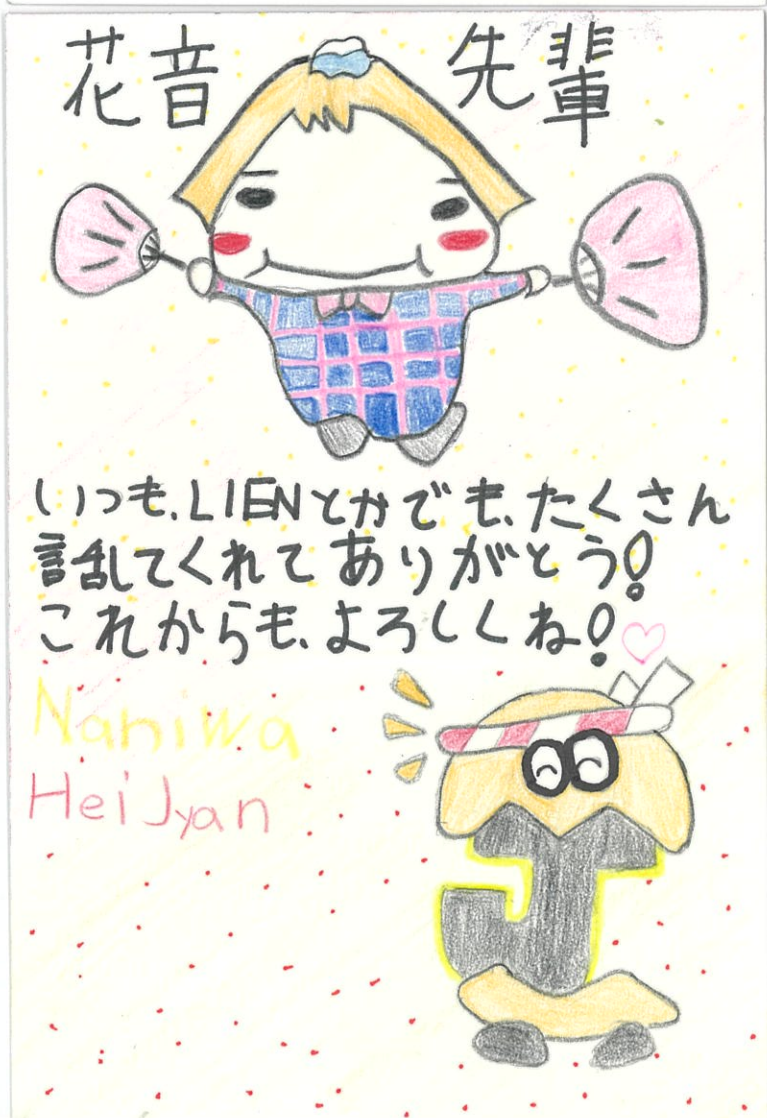 花音先輩
いつも、LIENとかでも、たくさん
話してくれてありがとう!
これからも、よろしくね!
Naniwa
HeiJyan